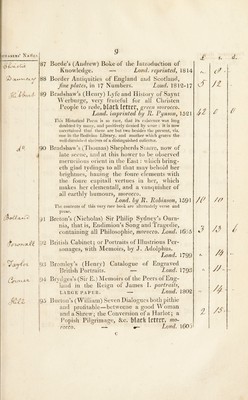 9
PURCHASERS' NAMES
£ s. d.
87 Borde's (Andrew) Boke of the Introduction of
Knowledge. — Lond. reprinted, 1814
88 Border Antiquities of England and Scotland,
fine plates, in 17 Numbers. Lond. 1812-17
5 12
89 Bradshaw's (Henry) Lyfe and History of Saynt
Werburge, very freutful for all Christen
People to rede, black letter, green morocco.
Lond. imprinted by R. Pynson, 1521
42 0 0
This Metrical Piece is so rare, that its existence was long
doubted by many, and positively denied by some: it is now
ascertained that there are but two besides the present, viz.
one in the Bodleian Library, and another which graces the
well-furnished shelves of a distinguished collector.
90 Bradshaw's (Thomas) Shepherds Starre, now of
late seene, and at this hower to be obserued
merueilous orient in the East: which bring-
eth glad tydings to all that may behold her
brightnes, hauing the foure elements with
the foure capitall vertues in her, which
makes her elementall, and a vanquisher of
all earthly humours, morocco.
Lond. by R. Robinson, 1591
10 10
The contents of this very rare book are alternately verse and
prose.
91 Brèton's (Nicholas) Sir Philip Sydney's Oura-
nia, that is, Endimion's Song and Tragedie,
containing all Philosophie, morocco. Lond. 1606
3 13 6
92 British Cabinet; or Portraits of Illustrious Per-
sonages, with Memoirs, by J. Adolphus.
Lond. 1799
14
Taylor
93 Bromley's (Henry) Catalogue of Engraved
British Portraits. — Lond. 1793
11
94 Brydges's (Sir E.) Memoirs of the Peers of Eng-
land in the Reign of James I. portraits,
LARGE PAPER. — Lond. 1802
14
Rice
95 Burton's (William) Seven Dialogues both pithie
and profitable—betweene a good Woman
and a Shrew; the Conversion of a Harlot; a
Popish Pilgrimage, &c. black letter, mo-
rocco. — Lond. 1606
2 15
C